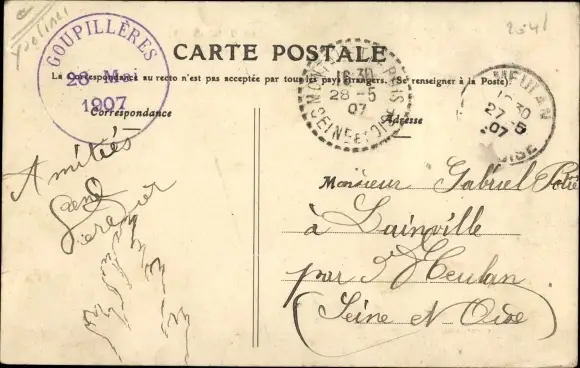 Yvelines
2541
GOUPILLÈRES
28 Mai
1907
CARTE POSTALE
La Correspondance au recto n'est pas acceptée par tous les pays étrangers. (Se renseigner à la Poste).
Correspondance
Adresse
16 30
28 - 5
07
SEINE ET OISE
MEULAN
30
27 - 5
07
OISE
Amitiés
Monsieur Gabriel
à Sainville
par Meulan
(Seine et Oise)